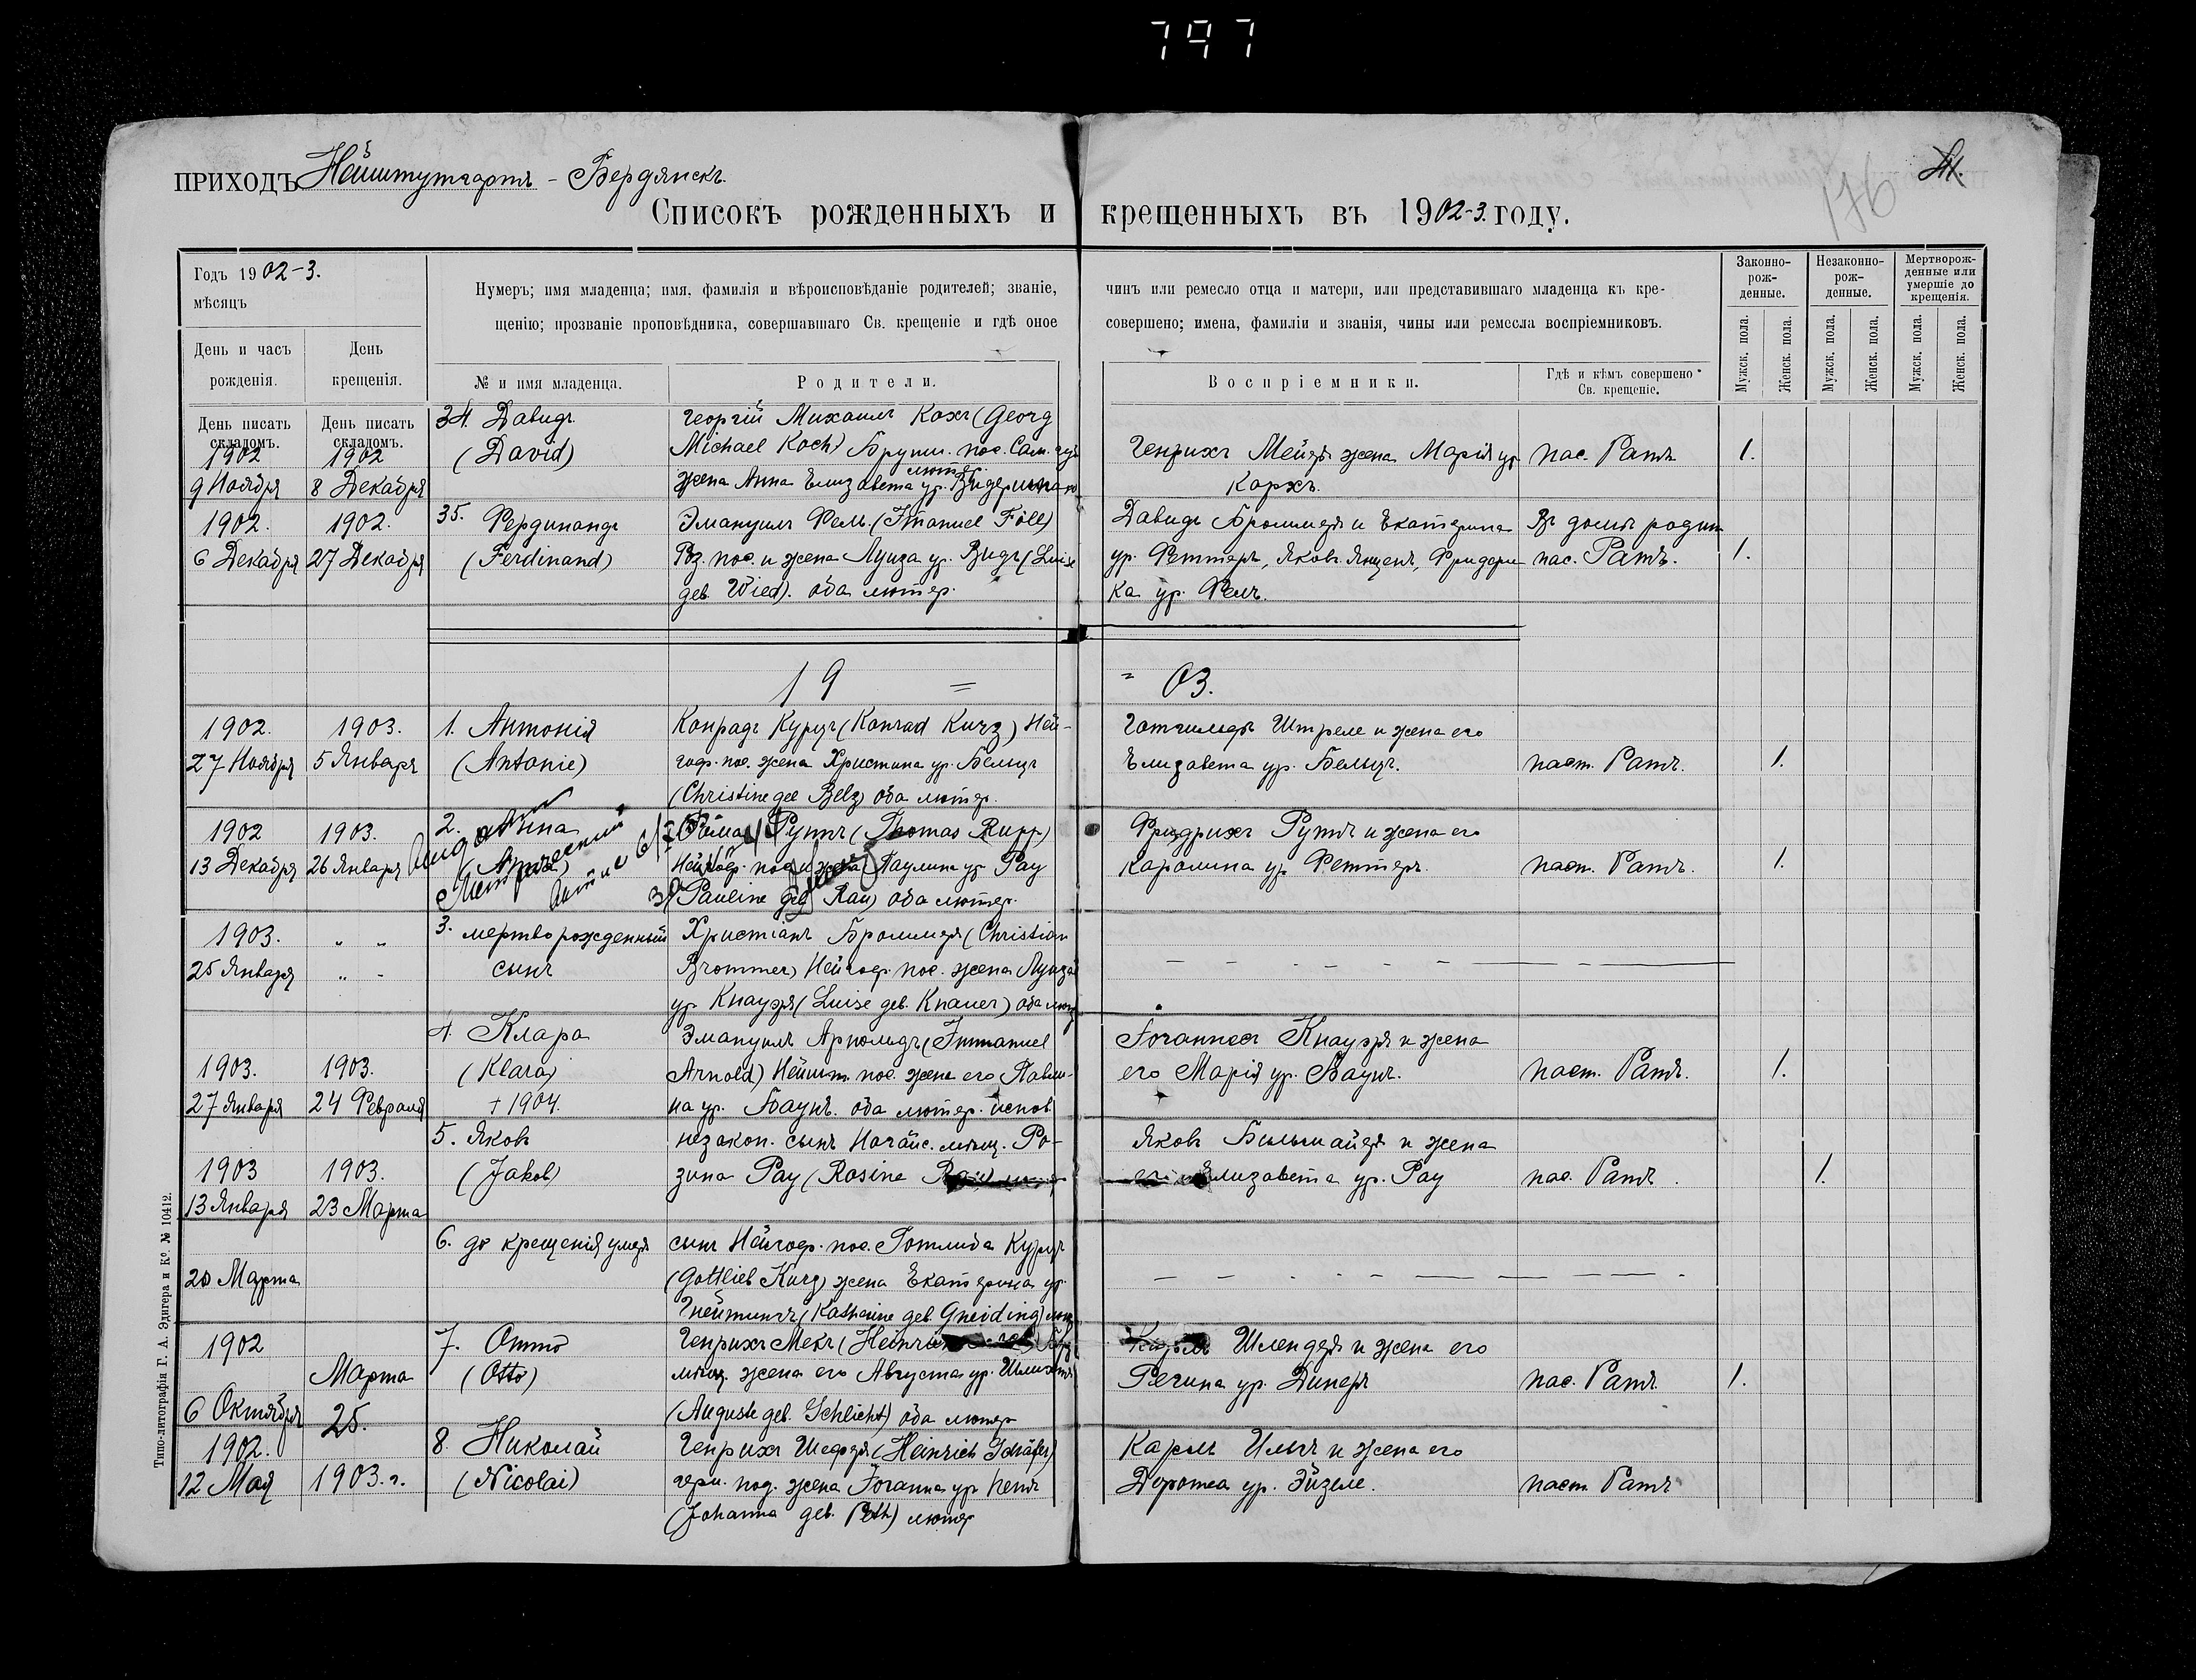 797
ПРИХОДЪ Нейштутгартъ - Бердянскъ.
176
Списокъ рожденныхъ и крещенныхъ въ 1902-3. году.
Годъ 1902-3.
мѣсяцъ
Нумеръ; имя младенца; имя, фамилія и вѣроисповѣданіе родителей; званіе, чинъ или ремесло отца и матери, или представившаго младенца къ кре-
щенію; прозваніе проповѣдника, совершавшаго Св. крещеніе и гдѣ оное совершено; имена, фамиліи и званія, чины или ремесла воспріемниковъ.
Законно-
рож-
денные.
Незаконно-
рож-
денные.
Мертворож-
денные или
умершіе до
крещенія.
День и часъ
рожденія.
День
крещенія.
№ и имя младенца.
Родители.
Воспріемники.
Гдѣ и кѣмъ совершено
Св. крещеніе.
Мужск. пола.
Женск. пола.
Мужск. пола.
Женск. пола.
Мужск. пола.
Женск. пола.
День писать
складомъ.
День писать
складомъ.
1902
9 Ноября
1902
8 Декабря
34. Давидъ
(David)
Георгій Михаилъ Кохъ (Georg
Michael Koch) Брунн. пос.
лютер.
жена Анна Елизавета ур.
Генрихъ Мейеръ жена Марія ур.
Коржъ.
пас. Ратъ
1.
1902.
6 Декабря
1902.
27 Декабря
35. Фердинандъ
(Ferdinand)
Эмануилъ Фель (Imanuel Föll)
пос. и жена Луиза ур. Видъ (Luise
geb. Wied). оба лютер.
Давидъ Броммеръ и Екатерина
ур. Феттеръ, Яковъ Янценъ, Фридери
ка ур. Фель.
Въ домѣ родит.
пас. Ратъ.
1.
19 =
= 03.
1902.
27 Ноября
1903.
5 Января
1. Антонія
(Antonie)
Конрадъ Курцъ (Konrad Kurz) Ней-
гоф. пос. жена Христина ур. Бельцъ
(Christine geb Belz) оба лютер.
Готлибъ Штреле и жена его
Елизавета ур. Бельцъ.
паст. Ратъ.
1.
1902
13 Декабря
1903.
26 Января
2. Анна
Фома Руппъ (Thomas Rupp)
Нейгоф. пос. и жена Паулина ур. Рау
Pauline geb Rau) оба лютер.
Фридрихъ Руппъ и жена его
Каролина ур. Феттеръ.
паст. Ратъ.
1.
1903.
25 Января
" "
" -
3. мертворожденный
сынъ
Христіанъ Броммеръ (Christian
Brommer) Нейгоф. пос. жена Луиза
ур Кнауэръ (Luise geb. Knauer) оба лют
1903.
27 Января
1903.
24 Февраля
4. Клара
(Klara)
+ 1904.
Эмануилъ Арнольдъ (Immanuel
Arnold) Нейшт. пос. жена его Павли-
на ур. Баунъ. оба лютер. испов
Іоганнесъ Кнауэръ и жена
его Марія ур. Баунъ.
паст. Ратъ.
1.
1903
13 Января
1903.
23 Марта
5. Яковъ
(Jakob)
незакон. сынъ Ногайс. мѣщ. Ро-
зина Рау (Rosine
Яковъ Бильмайеръ и жена
Елизавета ур. Рау
пас. Ратъ.
1.
20 Марта
6. до крещенія умеръ
сынъ Нейгоф. пос. Готлиба Курцъ
(Gottlieb Kurz) жена Екатерина ур.
Гнейтингъ (Katharine geb. Gneiding) лют
1902
6 Октября
Марта
25.
7. Отто
(Otto)
Генрихъ Мекъ (Heinrich
мѣщ. жена его Августа ур. Шлихтъ
(Auguste geb. Schlicht) оба лютер
Шлендеръ и жена его
Регина ур. Динеръ
пас. Ратъ
1.
1902.
12 Мая
1903. г.
8. Николай
(Nicolai)
Генрихъ Шеферъ (Heinrich Schäfer)
герм. под. жена Іоганна ур. Петъ
(Johanna geb. Peth) лютер
Карлъ Ильгъ и жена его
Доротеа ур. Эйзеле.
паст. Ратъ
Типо-литографія Г. А. Эдигера и Ко. № 10412.